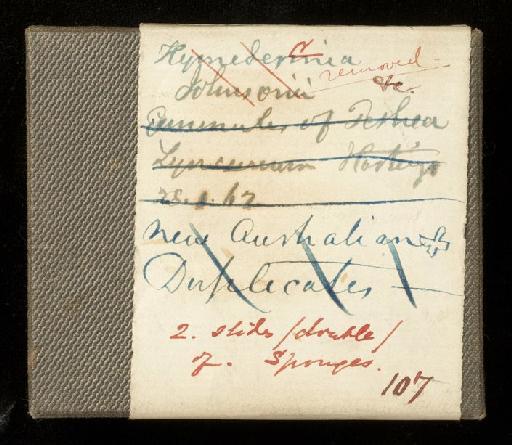 Hymedesmia
removed
Johnsonii &c.
Gemmules of Tethea
Lyncurium Hastings
28.8.62
New Australian &
Duplicates
2. slides / double /
of. Sponges.
107